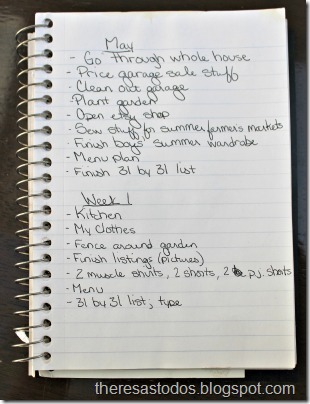 May
- Go through whole house
- Price garage sale stuff
- Clean out garage
- Plant garden
- Open etsy shop
- Sew stuff for summer farmers markets
- Finish boys' summer wardrobe
- Menu plan
- Finish 31 by 31 list
Week 1
- Kitchen
- My clothes
- Fence around garden
- Finish listings (pictures)
- 2 muscle shirts, 2 shorts, 2 p.j. shorts
- Menu
- 31 by 31 list, type
theresastodos.blogspot.com